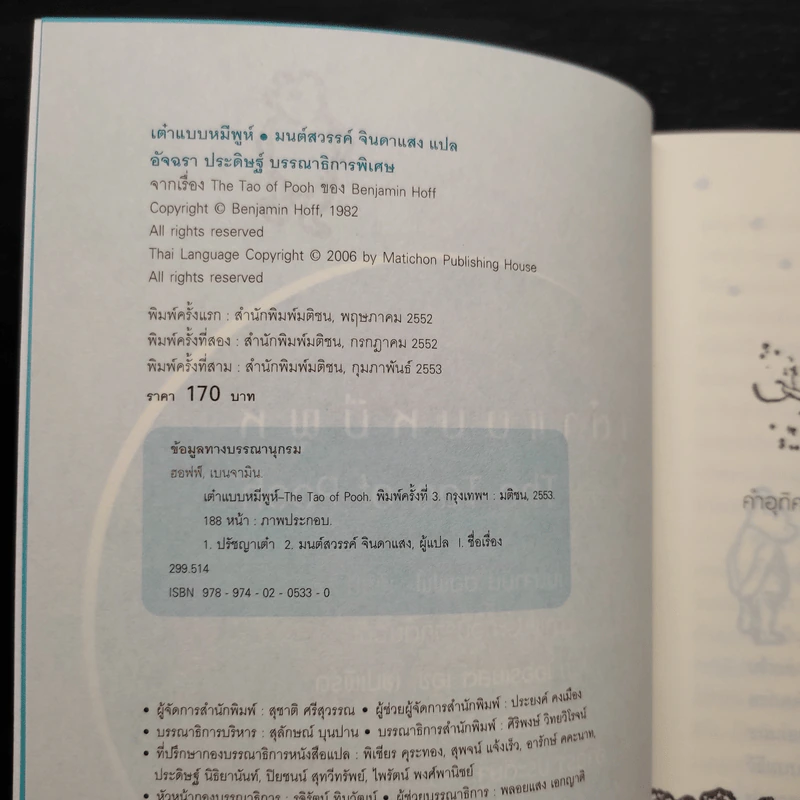 เต๋าแบบหมีพูห์ ● มนต์สวรรค์ จินดาแสง แปล
อัจฉรา ประดิษฐ์ บรรณาธิการพิเศษ
จากเรื่อง The Tao of Pooh ของ Benjamin Hoff
Copyright © Benjamin Hoff, 1982
All rights reserved
Thai Language Copyright © 2006 by Matichon Publishing House
All rights reserved
พิมพ์ครั้งแรก : สำนักพิมพ์มติชน, พฤษภาคม 2552
พิมพ์ครั้งที่สอง : สำนักพิมพ์มติชน, กรกฎาคม 2552
พิมพ์ครั้งที่สาม : สำนักพิมพ์มติชน, กุมภาพันธ์ 2553
ราคา 170 บาท
ข้อมูลทางบรรณานุกรม
ฮอฟฟ์, เบนจามิน.
เต๋าแบบหมีพูห์–The Tao of Pooh. พิมพ์ครั้งที่ 3. กรุงเทพฯ : มติชน, 2553.
188 หน้า : ภาพประกอบ.
1. ปรัชญาเต๋า 2. มนต์สวรรค์ จินดาแสง, ผู้แปล I. ชื่อเรื่อง
299.514
ISBN 978 - 974 - 02 - 0533 - 0
• ผู้จัดการสำนักพิมพ์ : สุชาติ ศรีสุวรรณ • ผู้ช่วยผู้จัดการสำนักพิมพ์ : ประยงค์ คงเมือง
• บรรณาธิการบริหาร : สุลักษณ์ บุนปาน • บรรณาธิการสำนักพิมพ์ : ศิริพงษ์ วิทยวิโรจน์
• ที่ปรึกษากองบรรณาธิการหนังสือแปล : พิเชียร คุระทอง, สุพจน์ แจ้งเร็ว, อารักษ์ คคะนาท,
ประดิษฐ์ นิธิยานันท์, ปิยชนน์ สุทวีทรัพย์, ไพรัตน์ พงศ์พานิชย์
• หัวหน้ากองบรรณาธิการ : รุจิรัตน์ ทิมวัฒน์ • ผู้ช่วยบรรณาธิการ : พลอยแสง เอกญาติ